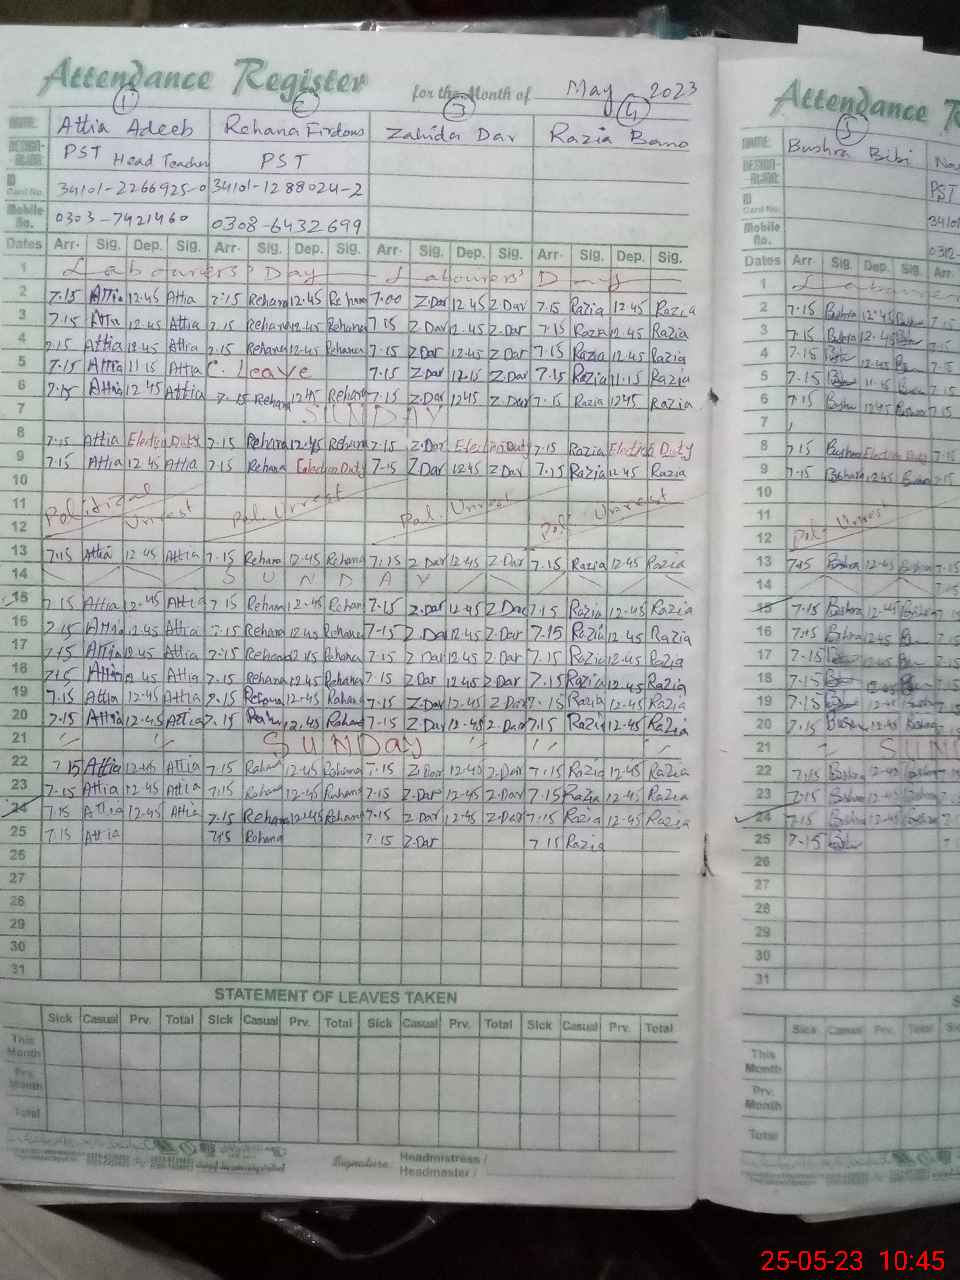 Attendance Register for the Month of May 2023
1 2 3 4
Attia Adeeb Rehana Firdous Zahida Dar Razia Bano
PST Head Teacher PST
ID Card No. 34101-2266925-0 34101-1288024-2
Mobile No. 0303-7421460 0308-6432699
Dates Arr. Sig. Dep. Sig. Arr. Sig. Dep. Sig. Arr. Sig. Dep. Sig. Arr. Sig. Dep. Sig.
1 Labourers' Day Labourers' Day
2 7.15 Attia 12.45 Attia 7.15 Rehana 12.45 Rehana 7.00 Z.Dar 12.45 Z.Dar 7.15 Razia 12.45 Razia
3 7.15 Attia 12.45 Attia 7.15 Rehana 12.45 Rehana 7.15 Z.Dar 12.45 Z.Dar 7.15 Razia 12.45 Razia
4 7.15 Attia 12.45 Attia 7.15 Rehana 12.45 Rehana 7.15 Z.Dar 12.45 Z.Dar 7.15 Razia 12.45 Razia
5 7.15 Attia 11.15 Attia C. leave 7.15 Z.Dar 12.15 Z.Dar 7.15 Razia 11.15 Razia
6 7.15 Attia 12.45 Attia 7.15 Rehana 12.45 Rehana 7.15 Z.Dar 12.45 Z.Dar 7.15 Razia 12.45 Razia
7 SUNDAY
8 7.15 Attia Election Duty 7.15 Rehana 12.45 Rehana 7.15 Z.Dar Election Duty 7.15 Razia Election Duty
9 7.15 Attia 12.45 Attia 7.15 Rehana Election Duty 7.15 Z.Dar 12.45 Z.Dar 7.15 Razia 12.45 Razia
10
11 Political Unrest Pol. Unrest Pol. Unrest Pol. Unrest
12
13 7.15 Attia 12.45 Attia 7.15 Rehana 12.45 Rehana 7.15 Z.Dar 12.45 Z.Dar 7.15 Razia 12.45 Razia
14 SUNDAY
15 7.15 Attia 12.45 Attia 7.15 Rehana 12.45 Rehana 7.15 Z.Dar 12.45 Z.Dar 7.15 Razia 12.45 Razia
16 7.15 Attia 12.45 Attia 7.15 Rehana 12.45 Rehana 7.15 Z.Dar 12.45 Z.Dar 7.15 Razia 12.45 Razia
17 7.15 Attia 12.45 Attia 7.15 Rehana 12.45 Rehana 7.15 Z.Dar 12.45 Z.Dar 7.15 Razia 12.45 Razia
18 7.15 Attia 12.45 Attia 7.15 Rehana 12.45 Rehana 7.15 Z.Dar 12.45 Z.Dar 7.15 Razia 12.45 Razia
19 7.15 Attia 12.45 Attia 7.15 Rehana 12.45 Rahana 7.15 Z.Dar 12.45 Z.Dar 7.15 Razia 12.45 Razia
20 7.15 Attia 12.45 Attia 7.15 12.45 Rahana 7.15 Z.Day 12.45 Z.Dar 7.15 Razia 12.45 Razia
21 SUNDay
22 7.15 Attia 12.45 Attia 7.15 Rahana 12.45 Rahana 7.15 Z.Dar 12.40 Z.Dar 7.15 Razia 12.45 Razia
23 7.15 Attia 12.45 Attia 7.15 Rahana 12.45 Rahana 7.15 Z.Dar 12.45 Z.Dar 7.15 Razia 12.45 Razia
24 7.15 Attia 12.45 Attia 7.15 Rehana 12.45 Rehana 7.15 Z.Dar 12.45 Z.Dar 7.15 Razia 12.45 Razia
25 7.15 Attia 7.15 Rohana 7.15 Z.Dar 7.15 Razia
26
27
28
29
30
31
STATEMENT OF LEAVES TAKEN
Sick Casual Prv. Total Sick Casual Prv. Total Sick Casual Prv. Total Sick Casual Prv. Total
This Month
Prv. Month
Total
Signature Headmistress /
Headmaster /
Attendance R
5
NAME: Bushra Bibi
PST
ID Card No. 3410
Mobile No. 0312-
Dates Arr. Sig. Dep. Sig. Arr.
1
2 7.15 Bushra 12.45 7.15
3 7.15 Bushra 12.45 7.15
4 7.15 12.45 7.15
5 7.15 11.15 7.15
6 7.15 12.45 7.15
7
8 7.15 Bushra Election Duty 7.15
9 7.15 Bushra 12.45 7.15
10
11 Pol. Unrest
12
13 7.15 Bushra 12.45 Bushra 7.15
14
15 7.15 Bushra 12.45 Bushra 7.15
16 7.15 Bushra 12.45 7.15
17 7.15 12.45 7.15
18 7.15 12.45 7.15
19 7.15 12.45 Bushra 7.15
20 7.15 Bushra 12.45 Bushra 7.15
21 SUN
22 7.15 Bushra 12.45 Bushra 7.15
23 7.15 Bushra 12.45 Bushra
24 7.15 Bushra 12.45 Bushra
25 7.15
26
27
28
29
30
31
S
Sick Casual Prv. Total Sick
This Month
Prv. Month
Total
25-05-23 10:45